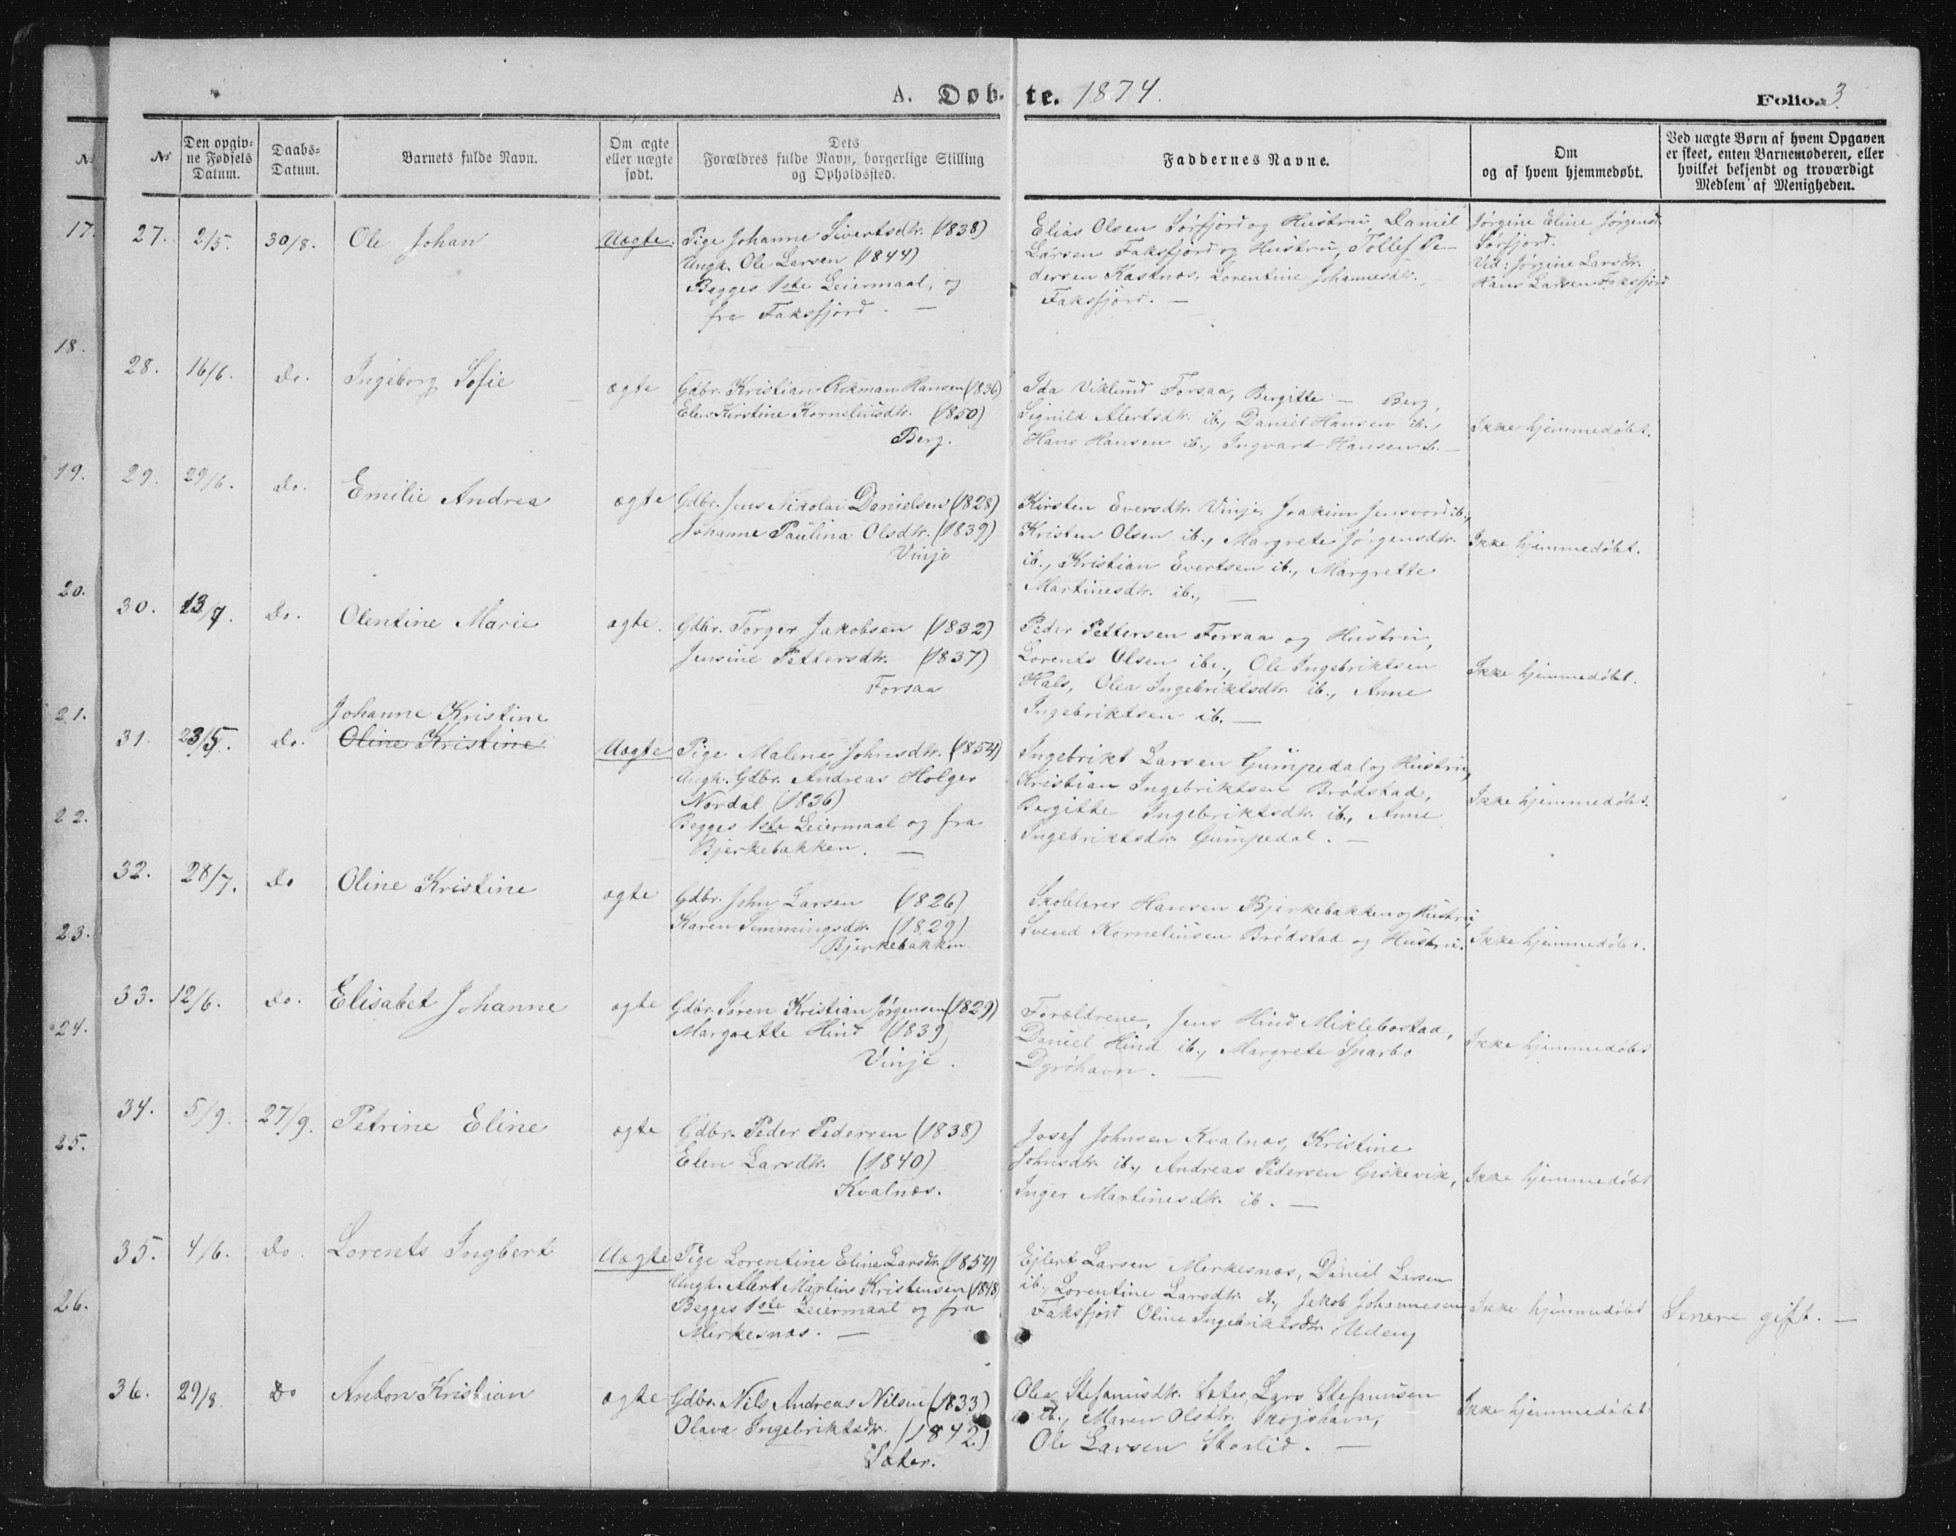 A. Døb- te. 1874.
Folio. 3
No
No
Den opgiv-
ne Fødsels
Datum.
Daabs-
Datum.
Barnets fulde Navn.
Om ægte
eller uægte
født.
Dets
Forældres fulde Navn, borgerlige Stilling
og Opholdssted.
Faddernes Navne.
Om
og af hvem hjemmedøbt.
Ved uægte Børn af hvem Opgaven
er skeet, enten Barnemoderen, eller
hvilket bekjendt og troværdigt
Medlem af Menigheden.
17.
18.
19.
20.
21.
22.
23.
24.
25.
26.
27. 2/5. 30/8. Ole Johan Uægte.
Pige Johanne Sivertsdtr. (1838)
Ungk. Ole Larsen (1844)
Begges 1ste Leiermaal, og
fra Faksfjord. —
Elias Olsen Sørfjord og Hustru, Daniel
Larsen Faksfjord og Hustru, Tollef Pe-
dersen Kastnæs, Lorentine Johannesdtr.,
Faksfjord. —
Jørgine Eline Jørgensd.
Sørfjord.
Vid: Jørgine Larsdtr.
Hans Larsen Faksfjord
28. 16/6. Do. Ingeborg Sofie ægte
Gdbr. Kristian Hansen (1836)
Elen Kirstine Korneliusdtr. (1850)
Berg.
Ida Viklund Forsaa, Bergitte — Berg,
Signild Alertsdtr. ib., Daniel Hansen ib.,
Hans Hansen ib., Ingvard Hansen ib. —
Ikke hjemmedøbt.
29. 29/6. Do. Emilie Andrea ægte
Gdbr. Jens Nikolai Danielsen (1828)
Johanne Paulina Olsdtr. (1839)
Vinje
Kirsten Eversdtr. Vinje, Joakim Jensvord ib.,
Kristen Olsen ib., Margrete Jørgensdtr.
ib., Kristian Evertsen ib., Margrette
Martinesdtr. ib., —
Ikke hjemmedøbt.
30. 13/7. Do. Olentine Marie ægte.
Gdbr. Torger Jakobsen (1832)
Jensine Pettersdtr. (1837)
Forsaa
Peder Pettersen Forsaa og Hustru,
Lorents Olsen ib., Ole Ingebriktsen
Hals, Olea Ingebriktsdtr. ib., Anne
Ingebriktsen ib. —
Ikke hjemmedøbt.
Johanne Kristine
31. 23/5. Do. Oline Kristine Uægte
Pige Malene Johnsdtr. (1854)
Ungk. Gdbr. Andreas Holger
Nordal (1836)
Begges 1ste Leiermaal og fra
Bjerkebakken. —
Ingebrikt Larsen Gumpedal og Hustru,
Kristian Ingebriktsen Brødstad,
Bergitte Ingebriktsdtr. ib., Anne
Ingebriktsdtr. Gumpedal. —
Ikke hjemmedøbt.
32. 28/7. Do Oline Kristine ægte
Gdbr. John Larsen (1826)
Karen Semmingsdtr. (1829)
Bjerkebakken
Skolelærer Hansen Bjerkebakken og Hustru,
Svend Korneliusen Brødstad og Hustru.
Ikke hjemmedøbt.
33. 12/6. Do. Elisabet Johanne ægte
Gdbr. Søren Kristian Jørgensen (1829)
Margrette Hind (1839)
Vinje.
Forældrene, Jens Hind Miklebostad,
Daniel Hind ib., Margrete Sparbo
Dyröhavn. —
Ikke hjemmedøbt
34. 5/9. 27/9. Petrine Eline ægte
Gdbr. Peder Pedersen (1838)
Elen Larsdtr. (1840)
Kvalnæs.
Josef Johnsen Kvalnæs, Kristine
Johnsdtr. ib., Andreas Pedersen Giskevik,
Inger Martinesdtr. ib. —
Ikke hjemmedøbt
35. 4/6. Do. Lorents Ingbert Uægte
Pige Lorentine Eline Larsdtr. (1854)
Ungk. Alert Martin Kristensen (1848)
Begges 1ste Leiermaal og fra
Merkesnæs. —
Ejlert Larsen Merkesnæs, Daniel Larsen
ib., Lorentine Larsdtr. ib., Jakob Johannesen
Faksfjord Oline Ingebriktsdtr.
Ikke hjemmedøbt
Senere gift. —
36. 29/8. Do Anton Kristian ægte
Gdbr. Nils Andreas Nilsen (1833)
Olava Ingebriktsdtr. (1842)
Sæter.
Olea Stefanusdtr. Sæter, Lars Stefanusen
ib., Maren Olsdtr. Skøjshavn,
Ole Larsen Storlid. —
Ikke hjemmedøbt